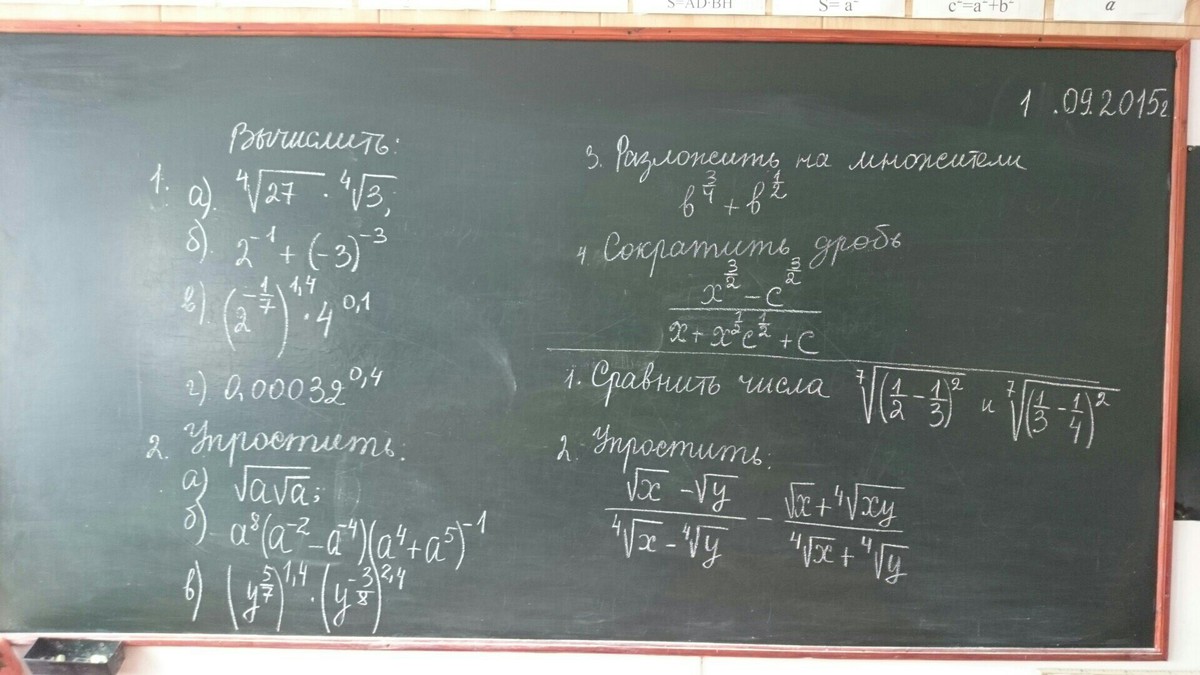 S=AD·BH
S= a²
c²=a²+b²
a
1 .09.2015г
Вычислить:
1. а). ∜27 · ∜3;
б). 2⁻¹ + (-3)⁻³
в). (2^(-1/7))^1,4 · 4^0,1
г) 0,00032^0,4
2. Упростить:
а) √(a√a);
б) a⁸(a⁻² - a⁻⁴)(a⁴ + a⁵)⁻¹
в) (y^(5/7))^1,4 · (y^(-3/8))^2,4
3. Разложить на множители
b^(3/4) + b^(1/2)
4. Сократить дробь
(x^(3/2) - c^(3/2)) / (x + x^(1/2)c^(1/2) + c)
1. Сравнить числа ⁷√((1/2 - 1/3)²) и ⁷√((1/3 - 1/4)²)
2. Упростить:
(√x - √y) / (∜x - ∜y) - (√x + ∜(xy)) / (∜x + ∜y)